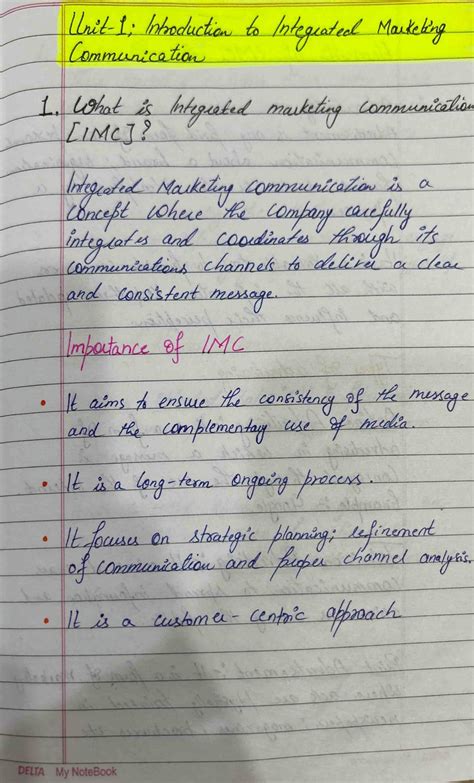 Unit-1; Introduction to Integrated Marketing
Communication
1. What is Integrated marketing communication
[IMC]?
Integrated Marketing communication is a
concept where the company carefully
integrates and coordinates through its
communications channels to deliver a clear
and consistent message.
Importance of IMC
• It aims to ensure the consistency of the message
and the complementary use of media.
• It is a long-term ongoing process.
• It focuses on strategic planning; refinement
of communication and proper channel analysis.
• It is a customer-centric approach
DELTA My NoteBook